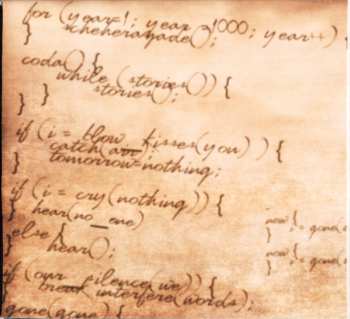 for (year=1; year 1000; year++) {
scheherazade();
}
coda() {
while (stories()) {
stories();
} }
if (i = blow_kisses(you) ) {
catch(air)
} tomorrow=nothing;
if (i = cry(nothing)) {
} hear(no_one)
else {
} hear();
if (our silence(we)) {
interfere(words);
gone(gone) {
now {
= gone(
now {
= gone(